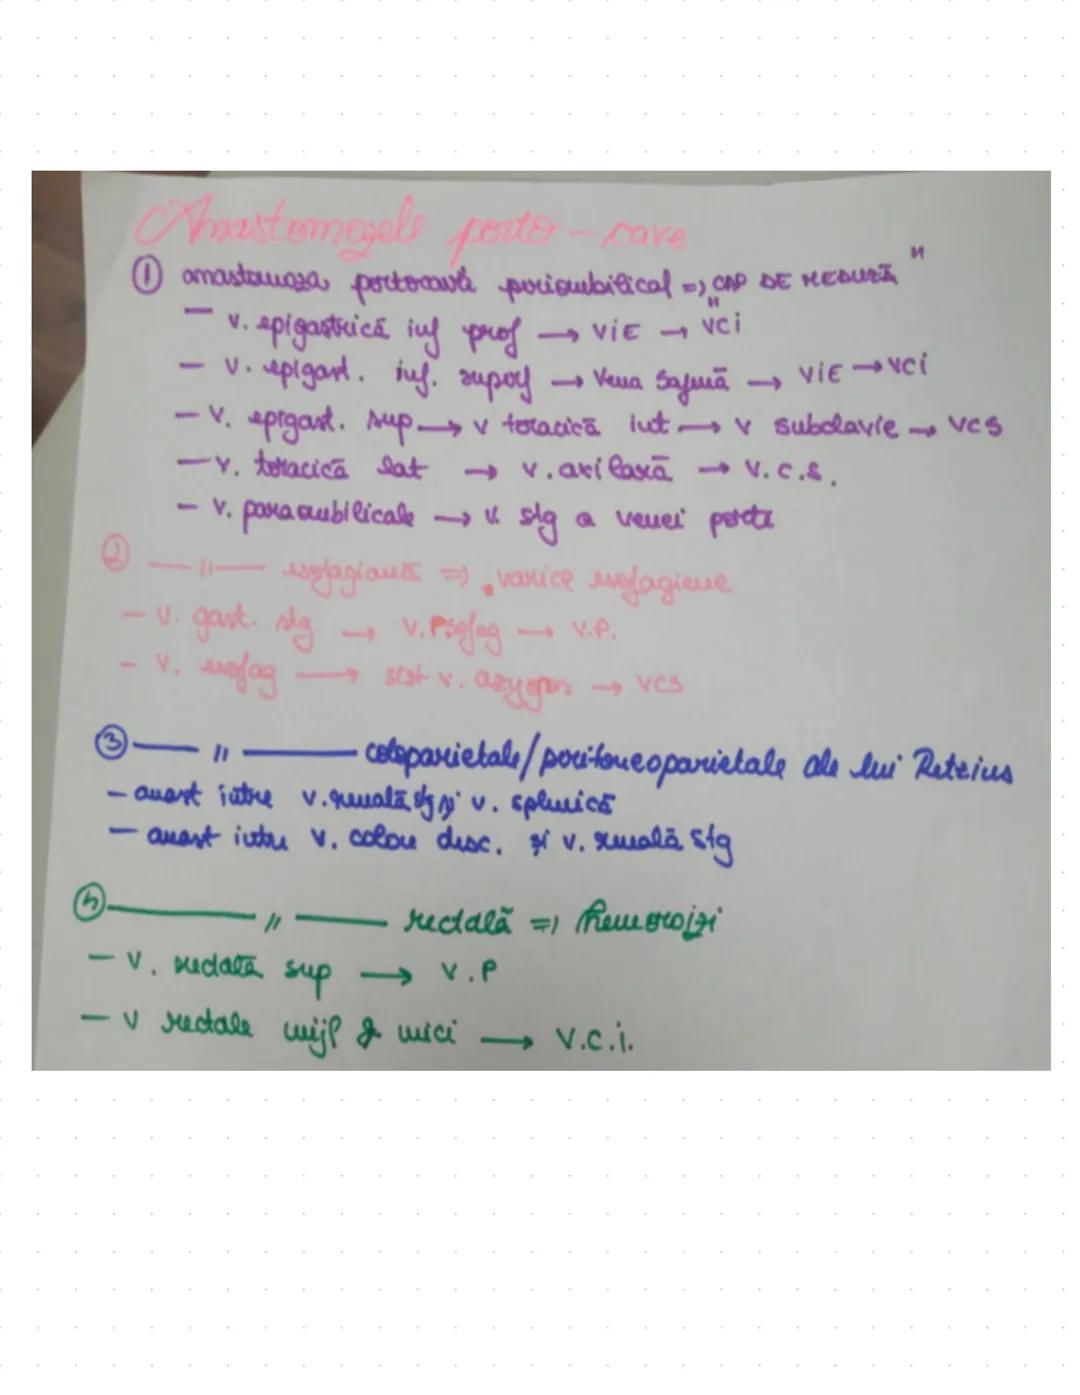 Anastomozele porto-cave
① anastomoza portocavă periombilical => „CAP DE MEDUZĂ"
— v. epigastrică inf prof → VIE → VCI
— v. epigast. inf. superf → Vena Safenă → VIE → VCI
— v. epigast. sup → v toracică int → v subclavie → VCS
— v. toracică lat → v. axilară → V.C.S.
— v. paraombilicale → v. stg a venei porte
② — 11 — esofagiană => varice esofagiene
— v. gast. stg → → V.P.
— v. esofag → sist v. azygos → VCS
③ — 11 — coloparietale/peritoneoparietale ale lui Retzius
— anast între v. renală stg și v. splenică
— anast între v. colon desc. și v. renală stg
④ — 11 — rectală => hemoroizi
— v. rectală sup → V.P
— v rectale mijl & mici → V.C.i.